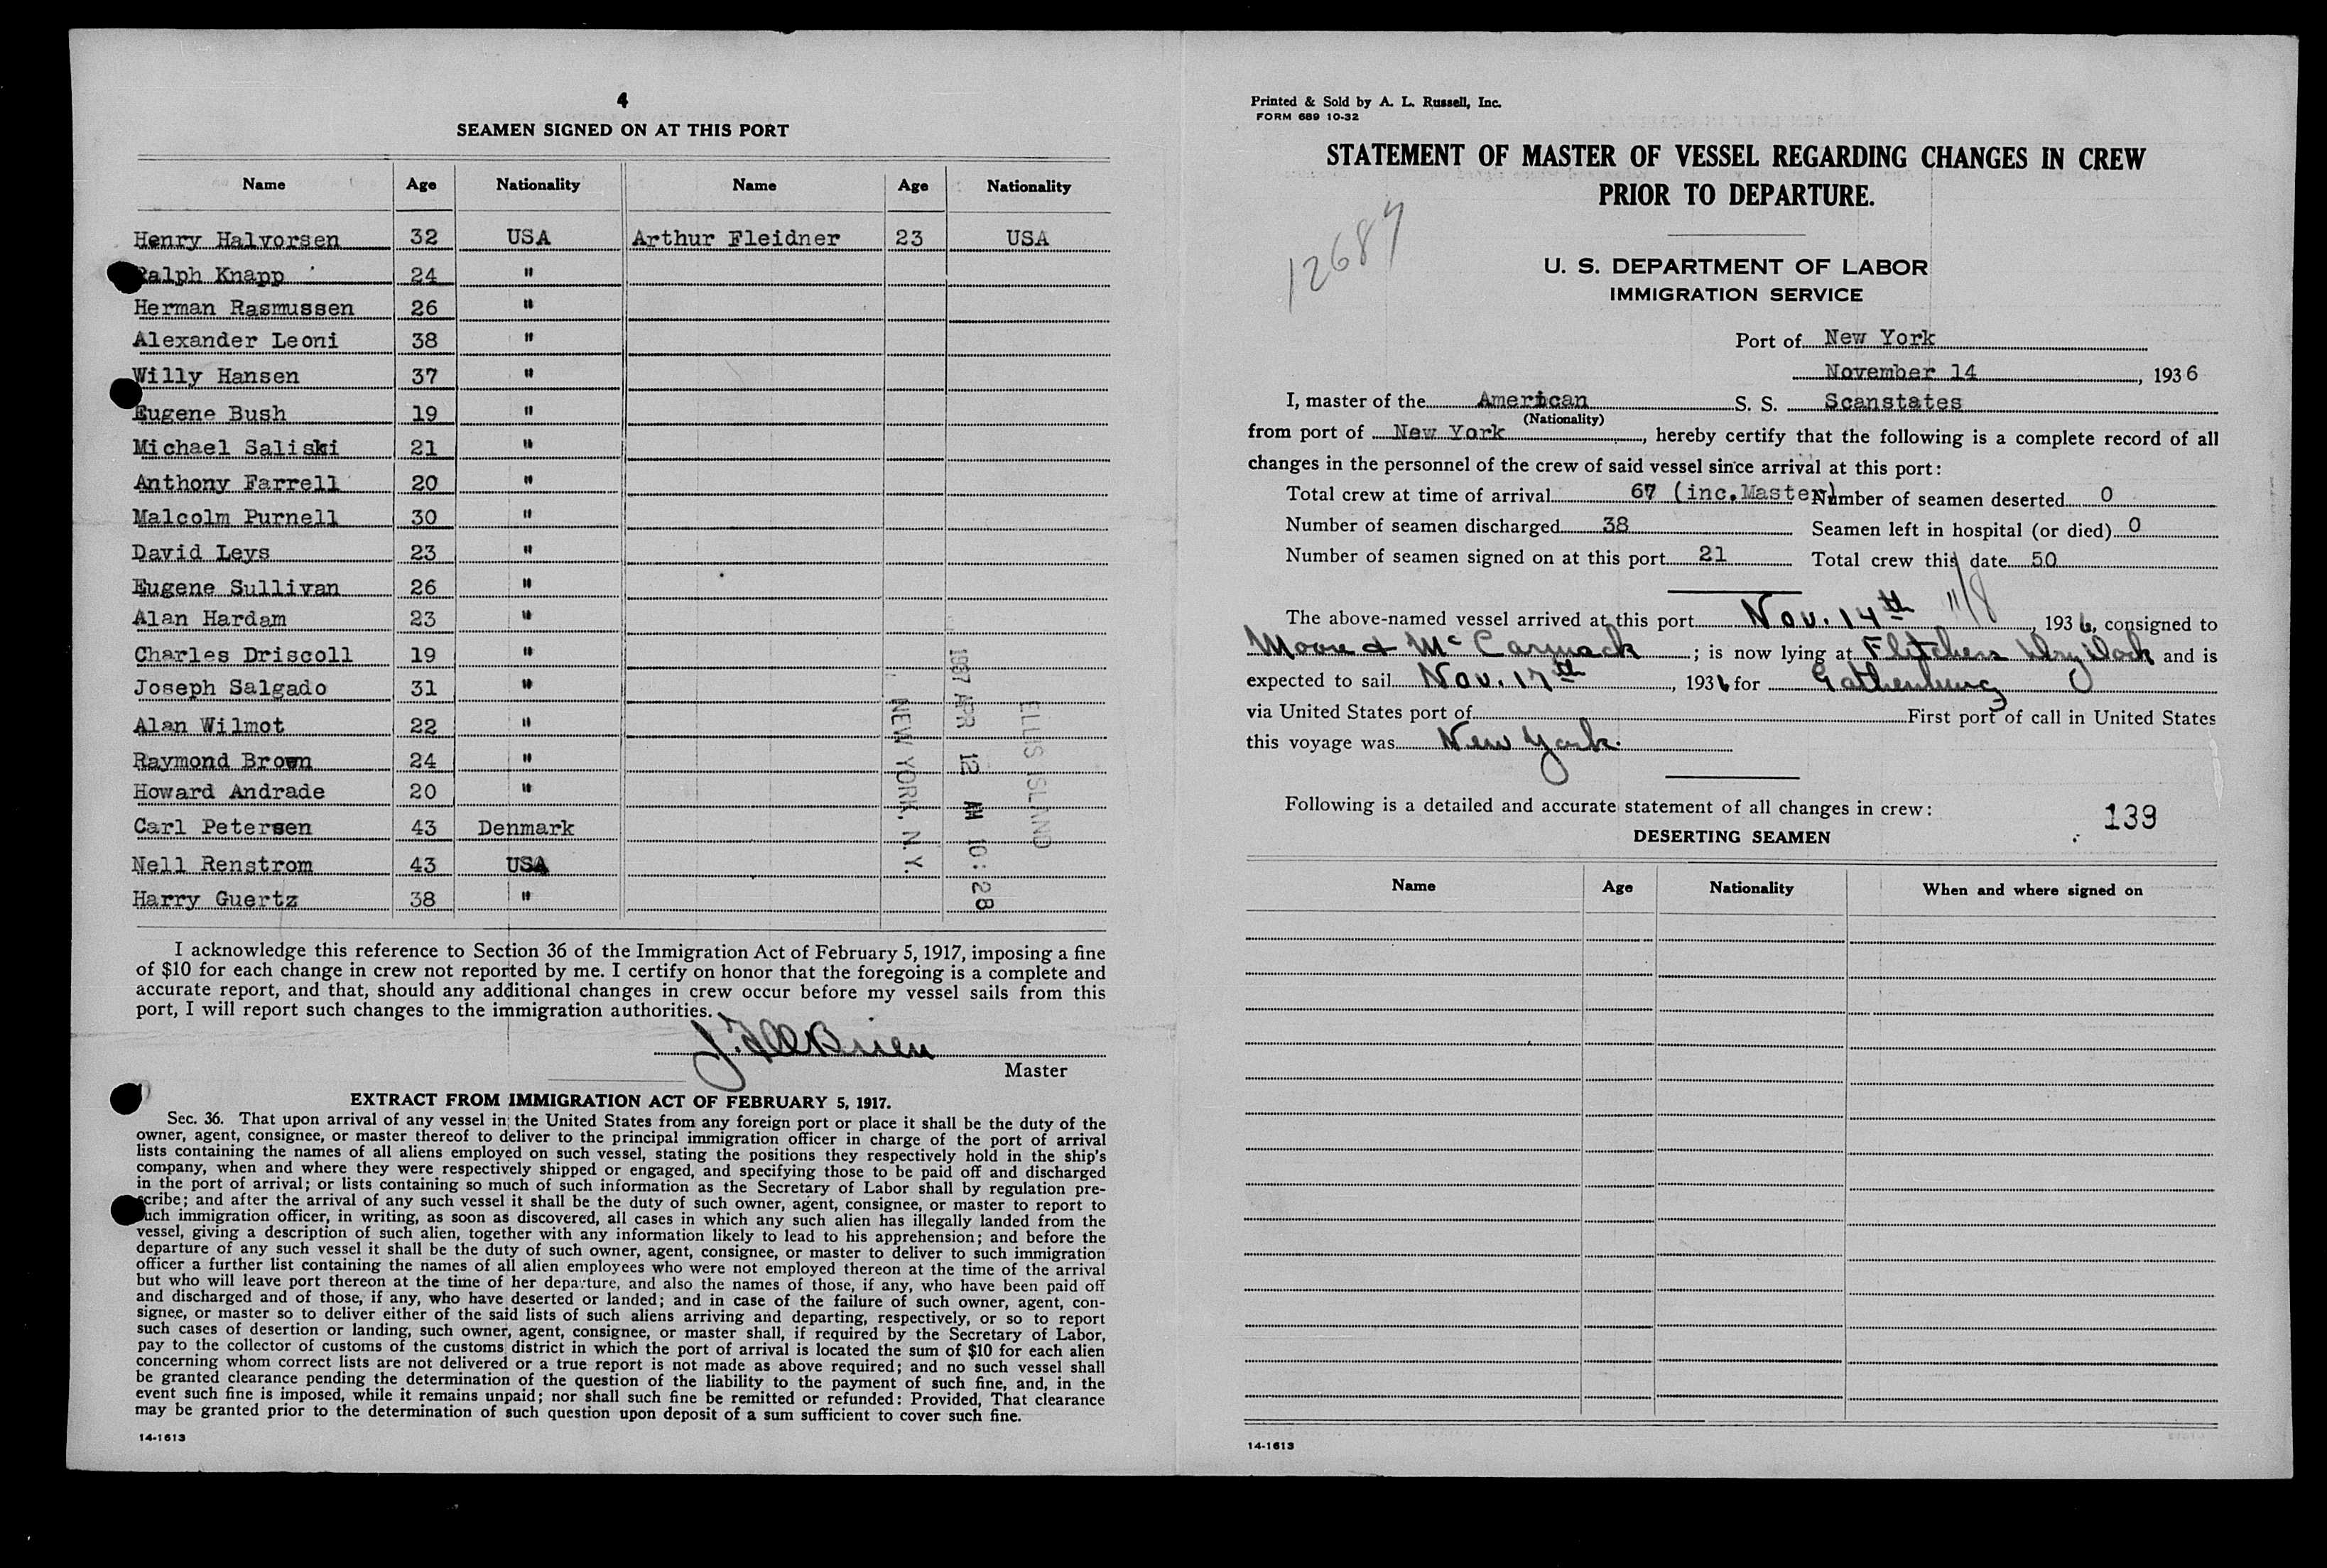 4
SEAMEN SIGNED ON AT THIS PORT
Name Age Nationality Name Age Nationality
Henry Halvorsen 32 USA Arthur Fleidner 23 USA
Ralph Knapp 24 "
Herman Rasmussen 26 "
Alexander Leoni 38 "
Willy Hansen 37 "
Eugene Bush 19 "
Michael Saliski 21 "
Anthony Farrell 20 "
Malcolm Purnell 30 "
David Leys 23 "
Eugene Sullivan 26 "
Alan Hardam 23 "
Charles Driscoll 19 "
Joseph Salgado 31 "
Alan Wilmot 22 "
Raymond Brown 24 "
Howard Andrade 20 "
Carl Petersen 43 Denmark
Nell Renstrom 43 USA
Harry Guertz 38 "
ELLIS ISLAND
1937 APR 12 AM 10:28
NEW YORK, N. Y.
I acknowledge this reference to Section 36 of the Immigration Act of February 5, 1917, imposing a fine
of $10 for each change in crew not reported by me. I certify on honor that the foregoing is a complete and
accurate report, and that, should any additional changes in crew occur before my vessel sails from this
port, I will report such changes to the immigration authorities.
Master
EXTRACT FROM IMMIGRATION ACT OF FEBRUARY 5, 1917.
Sec. 36. That upon arrival of any vessel in the United States from any foreign port or place it shall be the duty of the
owner, agent, consignee, or master thereof to deliver to the principal immigration officer in charge of the port of arrival
lists containing the names of all aliens employed on such vessel, stating the positions they respectively hold in the ship's
company, when and where they were respectively shipped or engaged, and specifying those to be paid off and discharged
in the port of arrival; or lists containing so much of such information as the Secretary of Labor shall by regulation pre-
scribe; and after the arrival of any such vessel it shall be the duty of such owner, agent, consignee, or master to report to
such immigration officer, in writing, as soon as discovered, all cases in which any such alien has illegally landed from the
vessel, giving a description of such alien, together with any information likely to lead to his apprehension; and before the
departure of any such vessel it shall be the duty of such owner, agent, consignee, or master to deliver to such immigration
officer a further list containing the names of all alien employees who were not employed thereon at the time of the arrival
but who will leave port thereon at the time of her departure, and also the names of those, if any, who have been paid off
and discharged and of those, if any, who have deserted or landed; and in case of the failure of such owner, agent, con-
signee, or master so to deliver either of the said lists of such aliens arriving and departing, respectively, or so to report
such cases of desertion or landing, such owner, agent, consignee, or master shall, if required by the Secretary of Labor,
pay to the collector of customs of the customs district in which the port of arrival is located the sum of $10 for each alien
concerning whom correct lists are not delivered or a true report is not made as above required; and no such vessel shall
be granted clearance pending the determination of the question of the liability to the payment of such fine, and, in the
event such fine is imposed, while it remains unpaid; nor shall such fine be remitted or refunded: Provided, That clearance
may be granted prior to the determination of such question upon deposit of a sum sufficient to cover such fine.
14-1613
Printed & Sold by A. L. Russell, Inc.
FORM 689 10-32
STATEMENT OF MASTER OF VESSEL REGARDING CHANGES IN CREW
PRIOR TO DEPARTURE.
12687
U. S. DEPARTMENT OF LABOR
IMMIGRATION SERVICE
Port of New York
November 14, 1936
I, master of the American S. S. Scanstates
(Nationality)
from port of New York, hereby certify that the following is a complete record of all
changes in the personnel of the crew of said vessel since arrival at this port:
Total crew at time of arrival 67 (inc.Master) Number of seamen deserted 0
Number of seamen discharged 38 Seamen left in hospital (or died) 0
Number of seamen signed on at this port 21 Total crew this date 50
11/8
The above-named vessel arrived at this port Nov. 14th, 1936, consigned to
Moore & McCormack; is now lying at Fletchers Dry Dock and is
expected to sail Nov. 17th, 1936 for Gothenburg
via United States port of First port of call in United States
this voyage was New York.
Following is a detailed and accurate statement of all changes in crew:
139
DESERTING SEAMEN
Name Age Nationality When and where signed on
14-1613